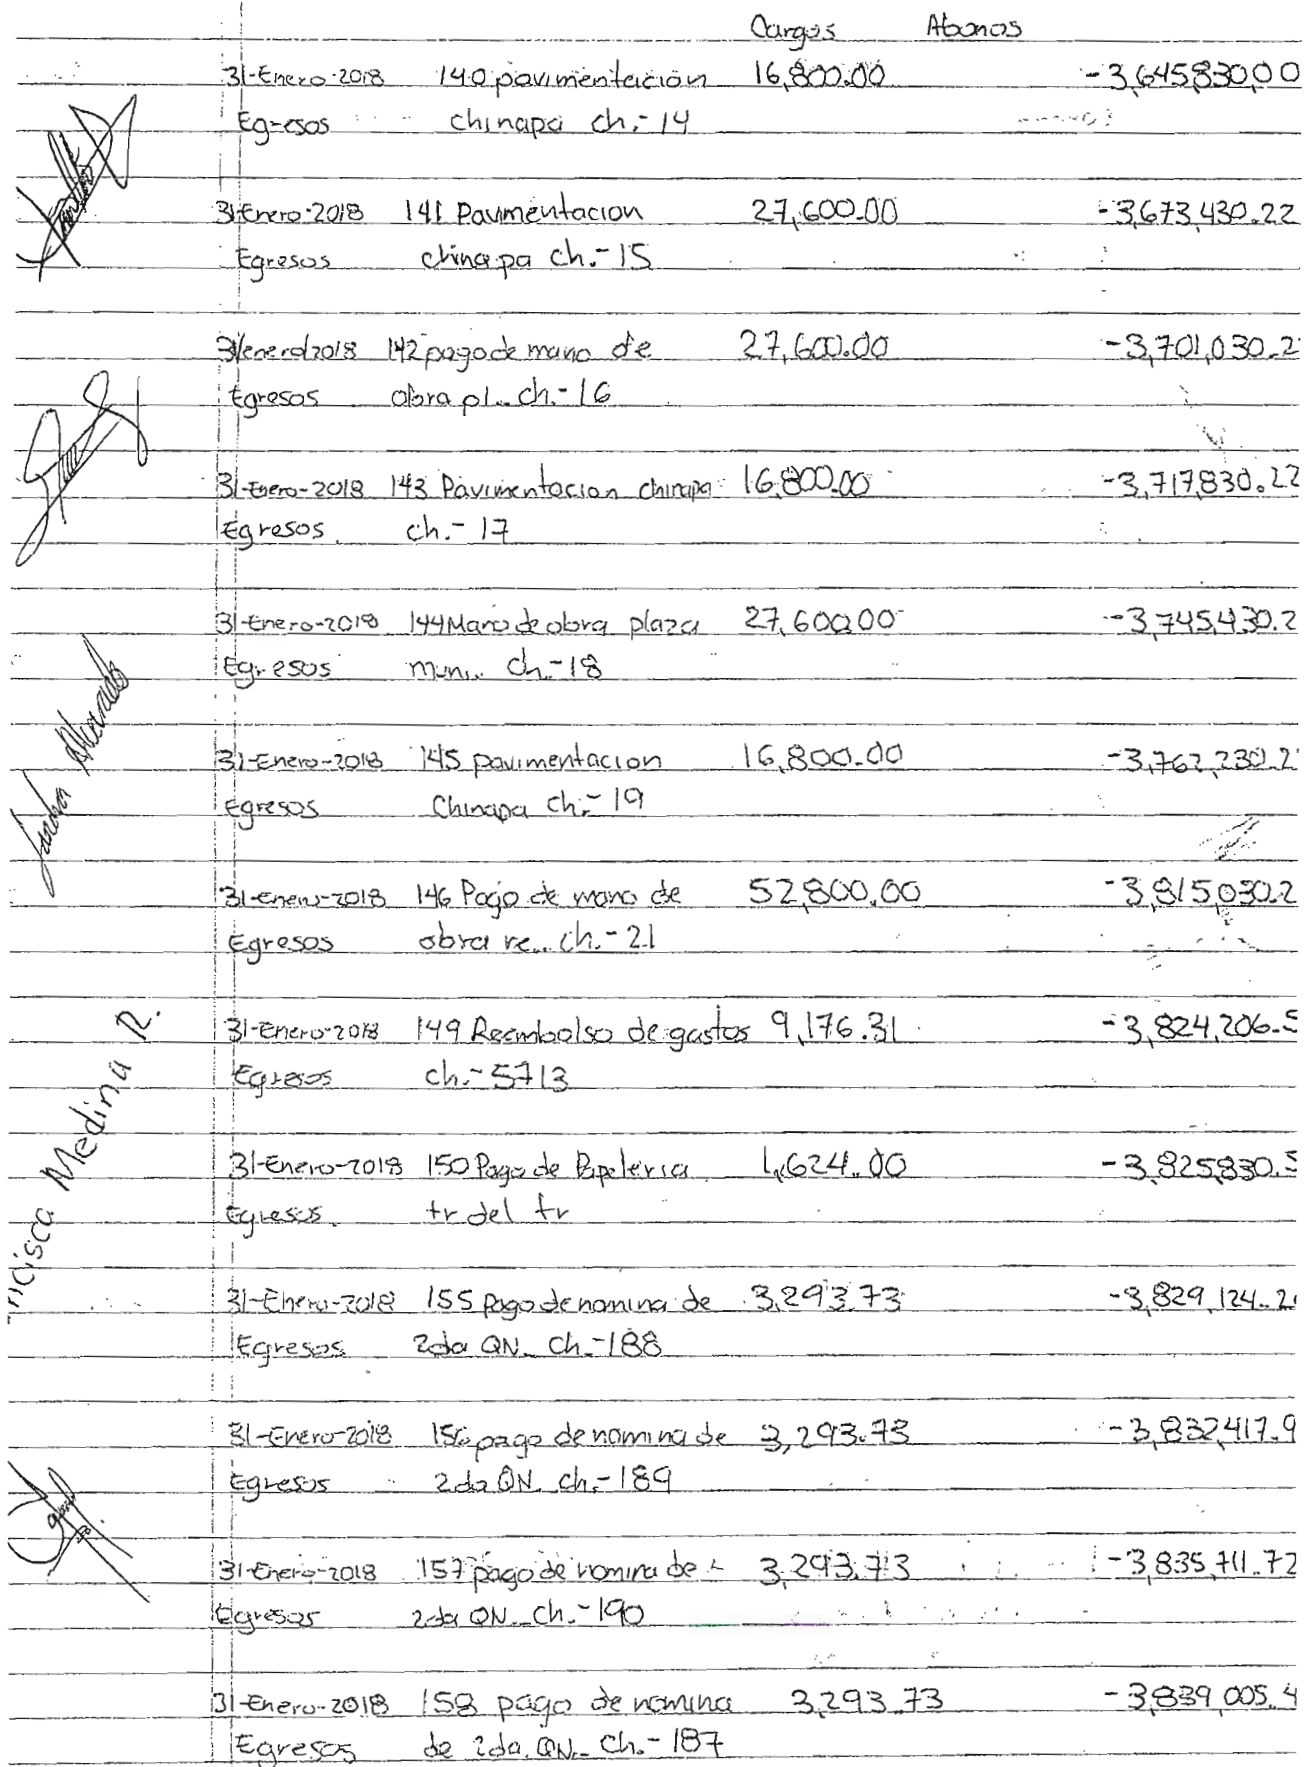 Cargos Abonos
31-Enero-2018 140 pavimentación 16,800.00 -3,645,830,00
Egresos chinapa ch.- 14
31-Enero-2018 141 Pavimentacion 27,600.00 -3,673,430.22
Egresos chinapa ch.- 15
31/enero/2018 142 pago de mano de 27,600.00 -3,701,030.2
Egresos obra pl.. ch.- 16
31-Enero-2018 143 Pavimentacion chinapa 16,800.00 -3,717,830.22
Egresos. ch.- 17
31-Enero-2018 144 Mano de obra plaza 27,600.00 -3,745,430.2
Egresos mun.. ch.- 18
31-Enero-2018 145 pavimentacion 16,800.00 -3,762,230.2
Egresos Chinapa ch.- 19
31-Enero-2018 146 Pago de mano de 52,800.00 -3,815,030.2
Egresos obra re.. ch.- 21
31-Enero-2018 149 Reembolso de gastos 9,176.31 -3,824,206.5
Egresos ch.- 5713
31-Enero-2018 150 Pago de Papeleria 1,624.00 -3,825,830.5
Egresos. tr del tr
31-Enero-2018 155 pago de nomina de 3,293.73 -3,829,124.2
Egresos 2da QN.. ch.- 188
31-Enero-2018 156 pago de nomina de 3,293.73 -3,832,417.9
Egresos 2da QN. ch.- 189
31-Enero-2018 157 pago de nomina de 3,293.73 -3,835,711.72
Egresos 2da QN.. ch.- 190
31-Enero-2018 158 pago de nomina 3,293.73 -3,839,005.4
Egresos de 2da. QN.. Ch.- 187
Medina R.